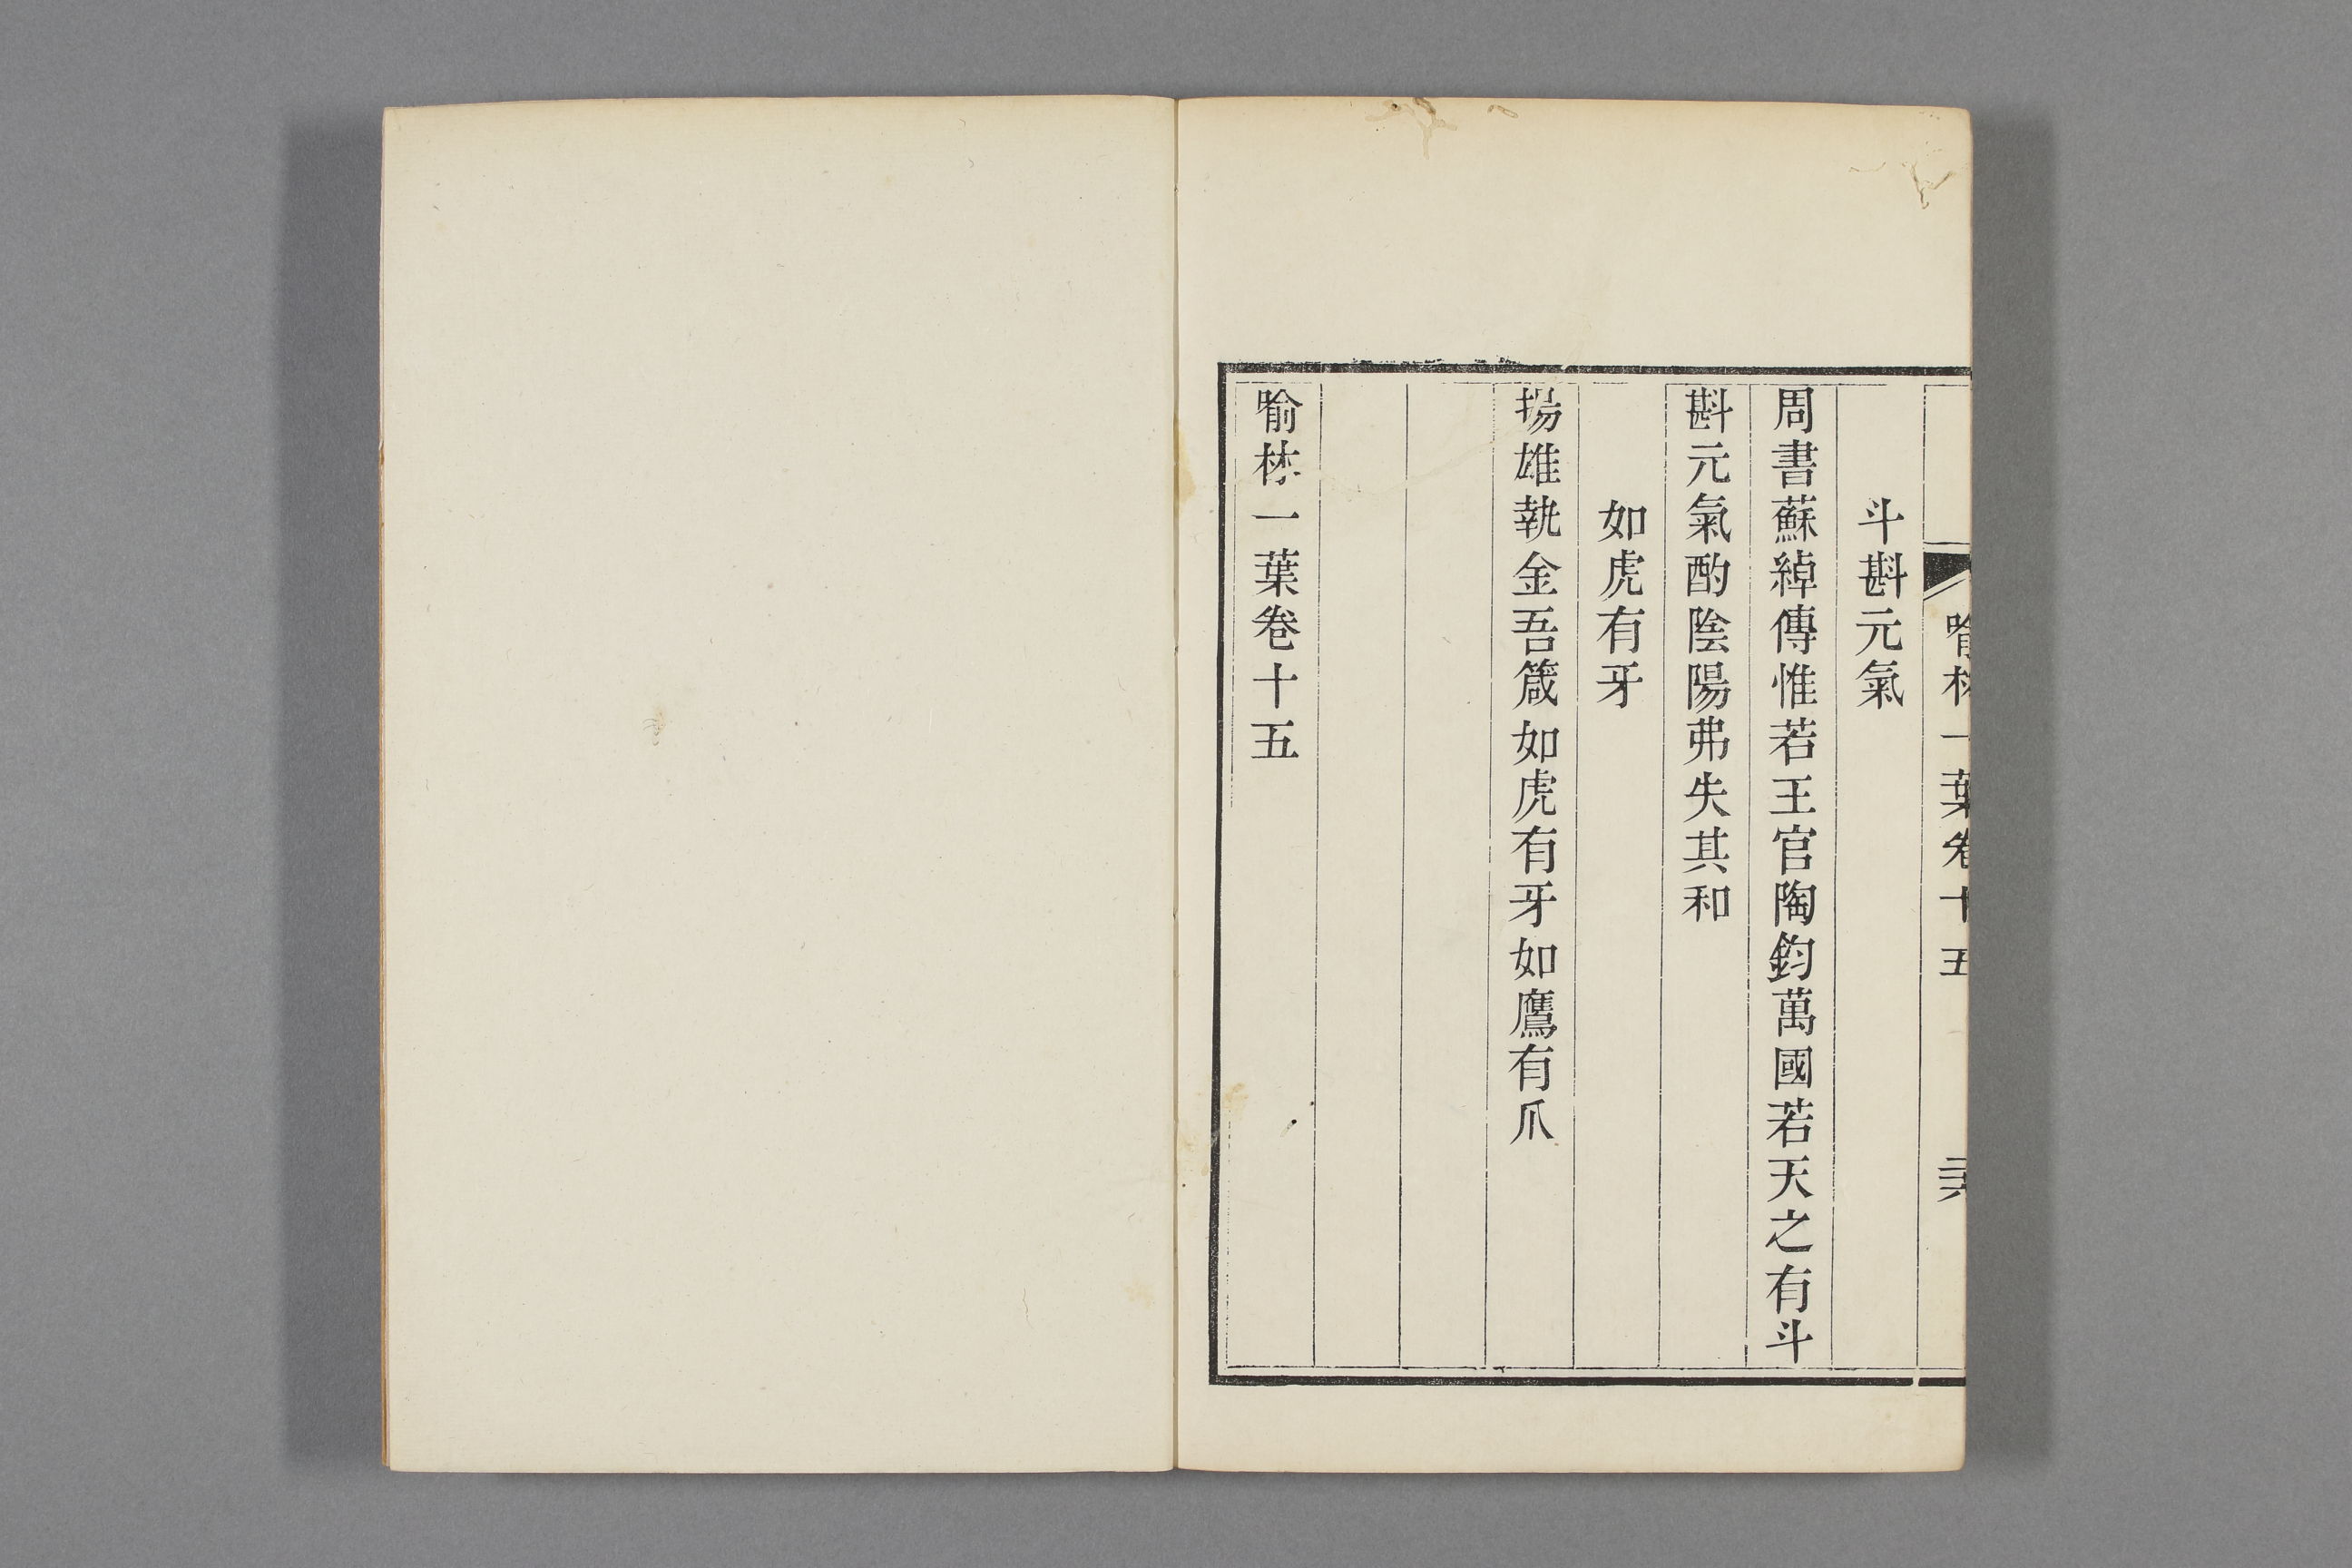 喻林一葉卷十五
斗斟元氣
周書蘇綽傳惟若王官陶鈞萬國若天之有斗
斟元氣酌陰陽弗失其和
如虎有牙
揚雄執金吾箴如虎有牙如鷹有爪
喻林一葉卷十五